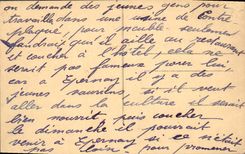 on demande des jeunes gens pour
travailler dans une usine de contre
plaqué, pour meuble, seulement
faudrait qu'il aille au restaurant
et coucher à l'hôtel, cela ne
serait pas fameux pour lui,
car à Epernay il y a des
jeunes vauriens, si il veut
aller dans la culture il serait
bien nourrit, puis coucher
le dimanche il pourrait
venir à Epernay si ce n'était
pas loin pour promener